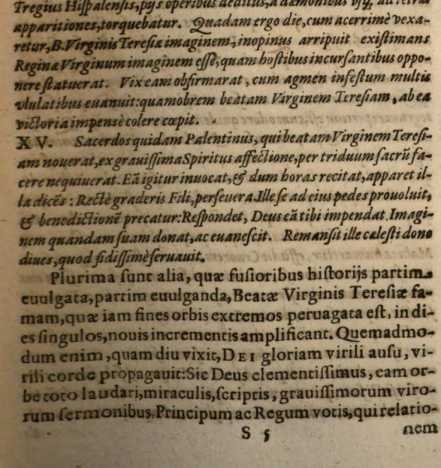 Tregius Hispalensis, pijs operibus deditus, a dæmonibus
apparitiones, torquebatur. Quadam ergo die, cum acerrimè vexa-
retur, B. Virginis Teresiæ imaginem, inopinus arripuit existimans
Reginæ Virginum imaginem esse, quam hostibus incursantibus oppo-
nere statuerat. Vix eam obfirmarat, cum agmen infestum multis
vlulatibus euanuit: quamobrem beatam Virginem Teresiam, ab ea
victoria impensè colere cœpit.
XV. Sacerdos quidam Palentinus, qui beatam Virginem Teresi-
am nouerat, ex grauissima Spiritus affectione, per triduum sacrū fa-
cere nequiuerat. Eā igitur inuocat, & dum horas recitat, apparet il-
la dicēs: Rectè graderis Fili, perseuera. Ille se ad eius pedes prouoluit,
& benedictionē precatur: Respondet, Deus eā tibi impendat. Imagi-
nem quandam suam donat, ac euanescit. Remansit ille cælesti dono
diues, quod fidissimè seruauit.
Plurima sunt alia, quæ fusioribus historijs partim
euulgata, partim euulganda, Beatæ Virginis Teresiæ fa-
mam, quæ iam fines orbis extremos peruagata est, in di-
es singulos, nouis incrementis amplificant. Quemadmo-
dum enim, quam diu vixit, DEI gloriam virili ausu, vi-
rili corde propagauit: Sic Deus clementissimus, eam or-
be toto laudari, miraculis, scriptis, grauissimorum viro-
rum sermonibus, Principum ac Regum votis, qui relatio-
S 5 nem